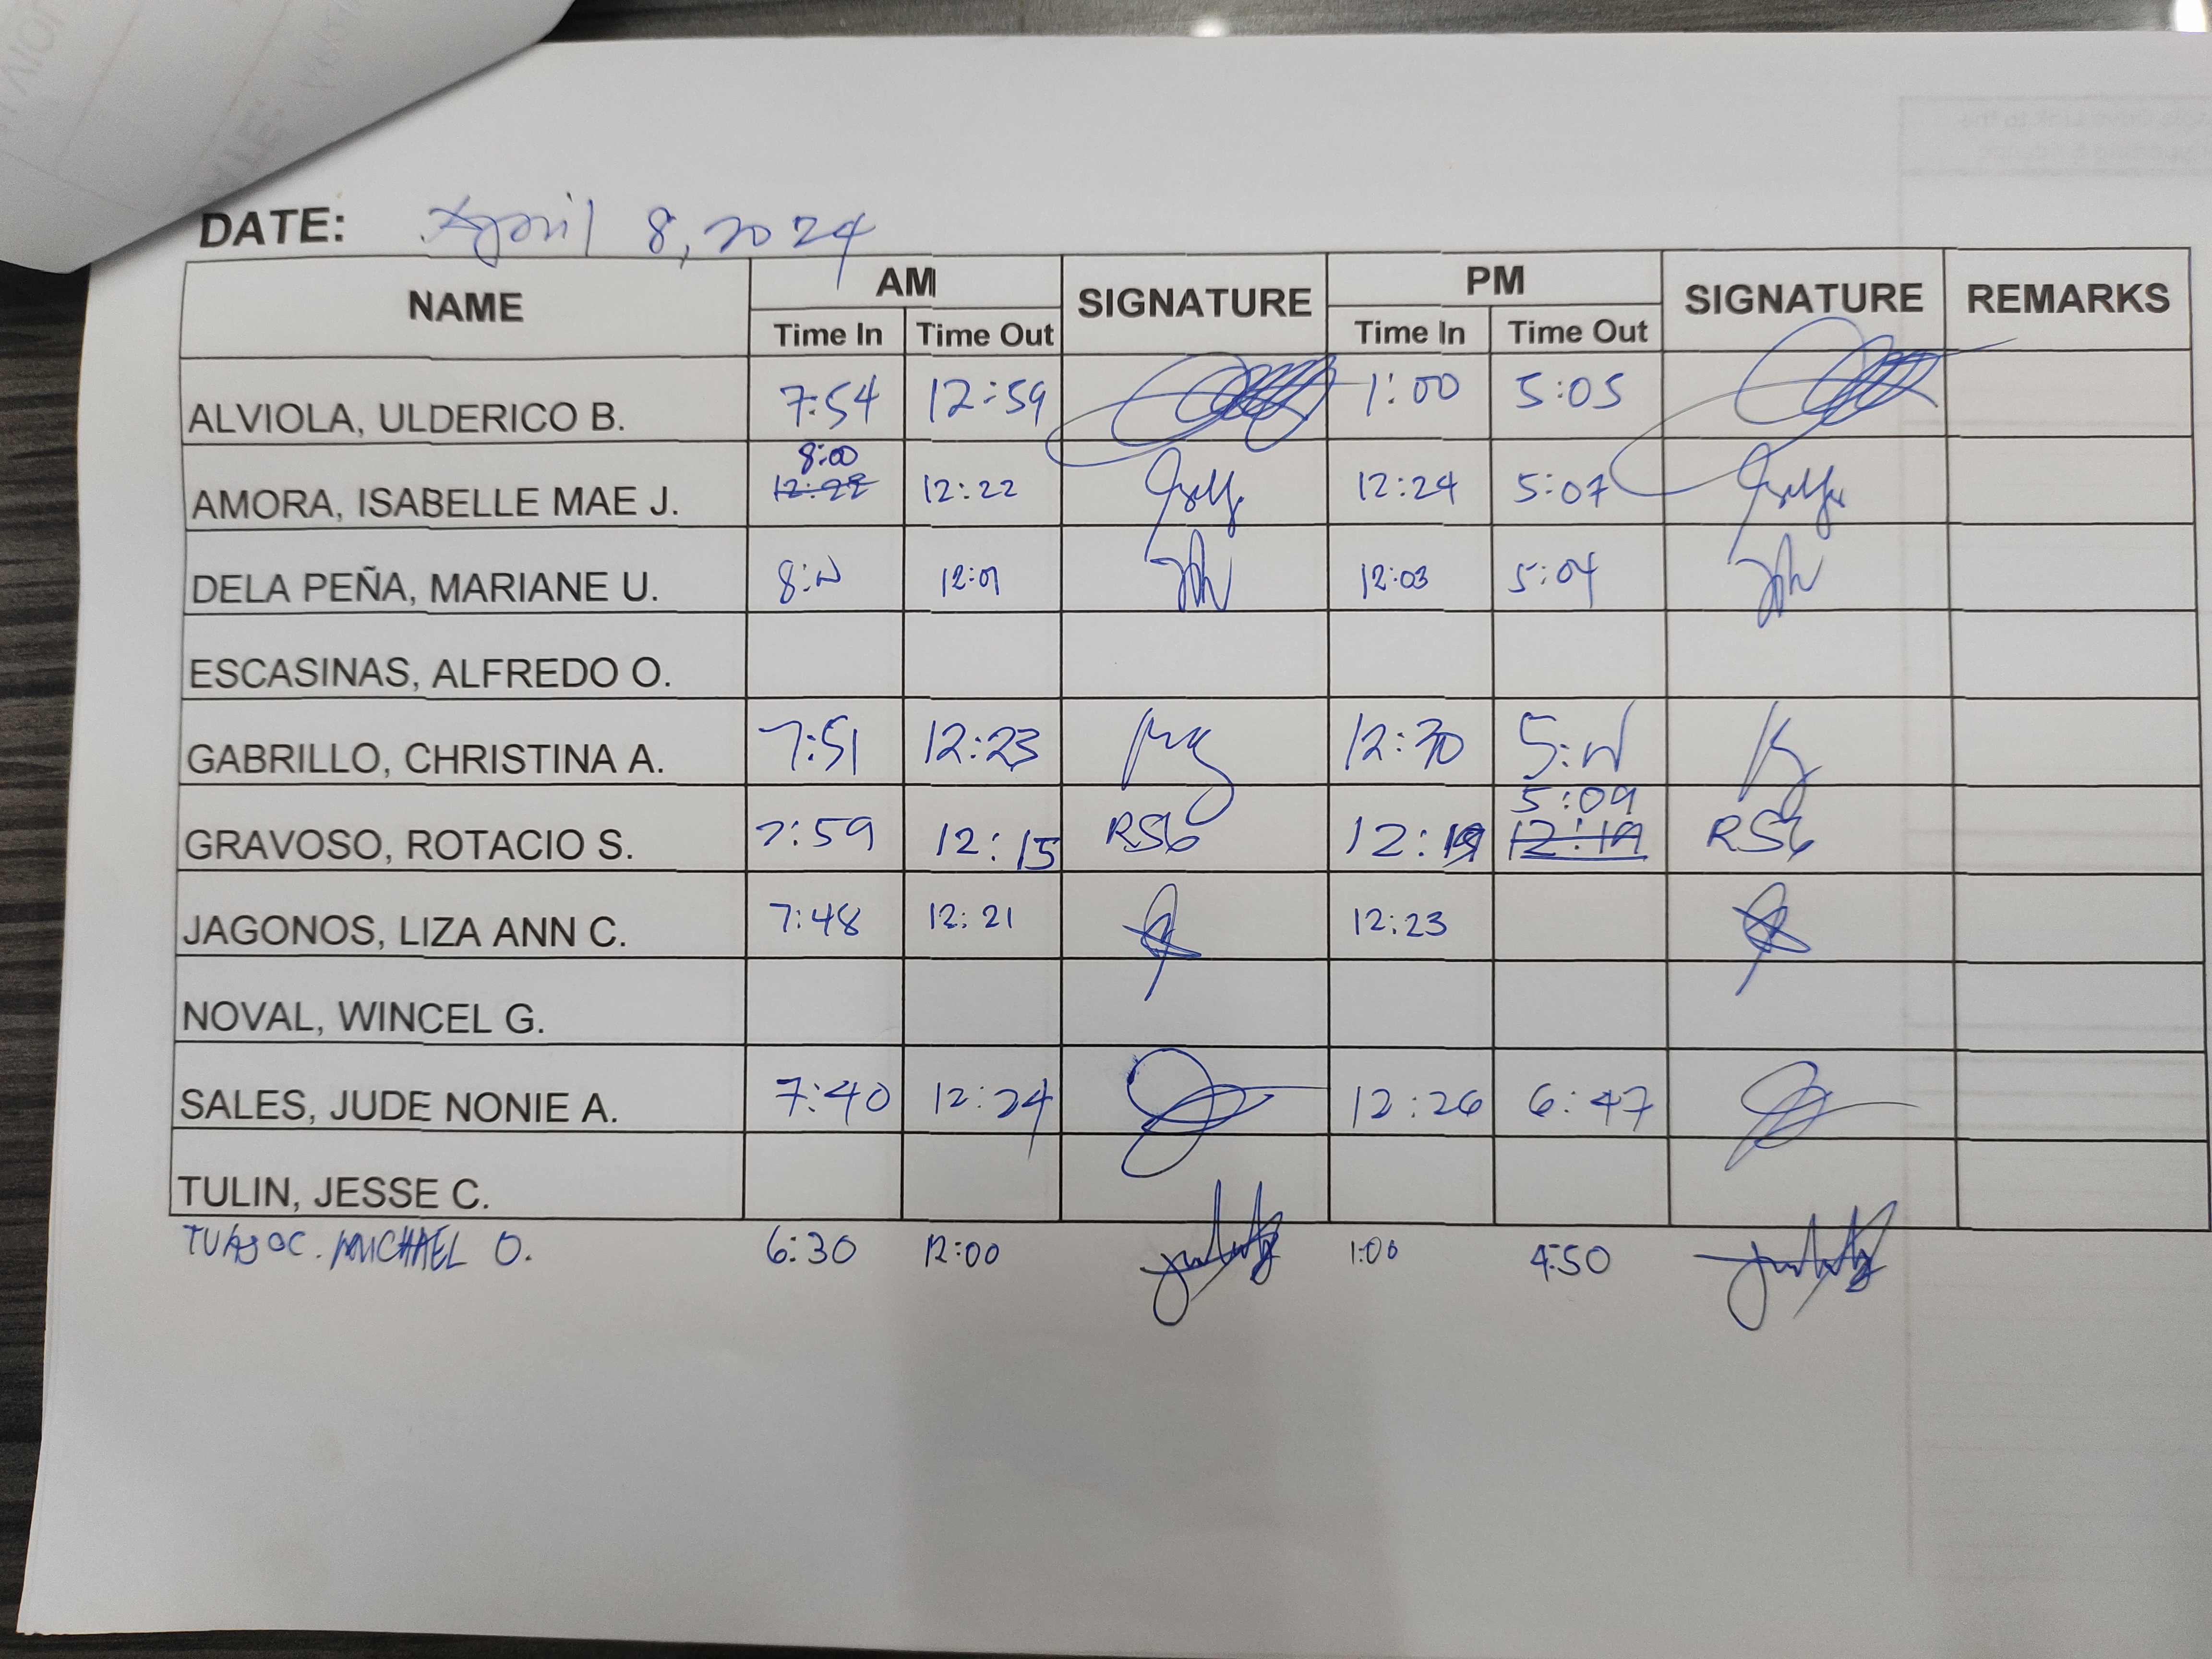 DATE: April 8, 2024
NAME AM SIGNATURE PM SIGNATURE REMARKS
Time In Time Out Time In Time Out
ALVIOLA, ULDERICO B. 7:54 12:59 1:00 5:05
8:00
AMORA, ISABELLE MAE J. 12:22 12:22 12:24 5:07
DELA PEÑA, MARIANE U. 12:01 12:03 5:04
ESCASINAS, ALFREDO O.
GABRILLO, CHRISTINA A. 7:51 12:23 12:30
5:09
GRAVOSO, ROTACIO S. 7:59 12:15 RSG 12:19 12:19 RSG
JAGONOS, LIZA ANN C. 7:48 12:21 12:23
NOVAL, WINCEL G.
SALES, JUDE NONIE A. 7:40 12:24 12:26 6:47
TULIN, JESSE C.
MICHAEL O. 6:30 12:00 1:00 4:50